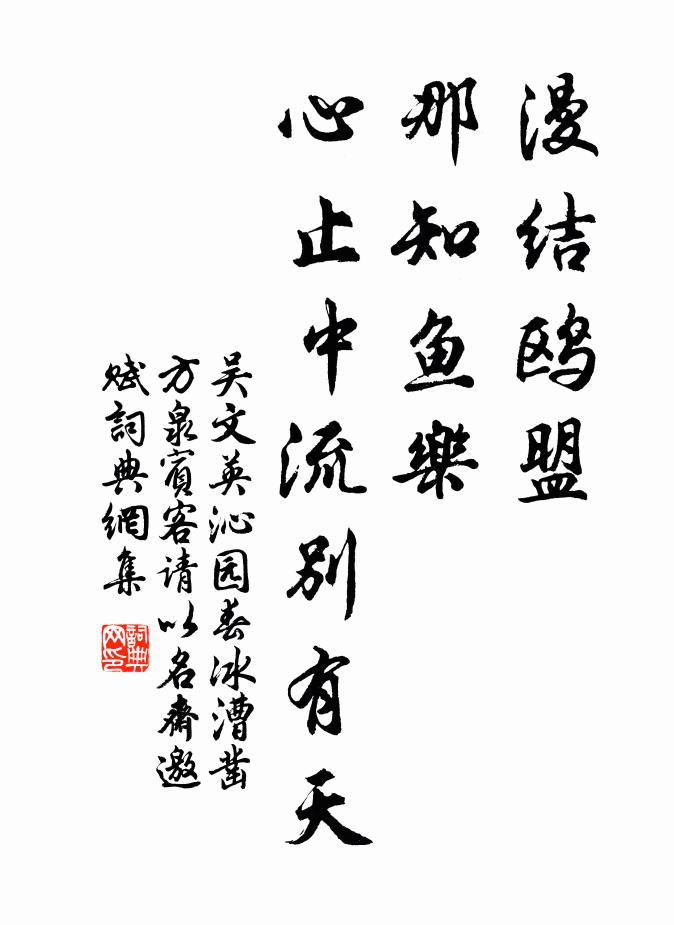 漫结鸥盟
那知鱼樂
心止中流别有天
吴文英沁园春冰漕凿
方泉賓客请以名齋邀
赋詞典網集
詞典
网印